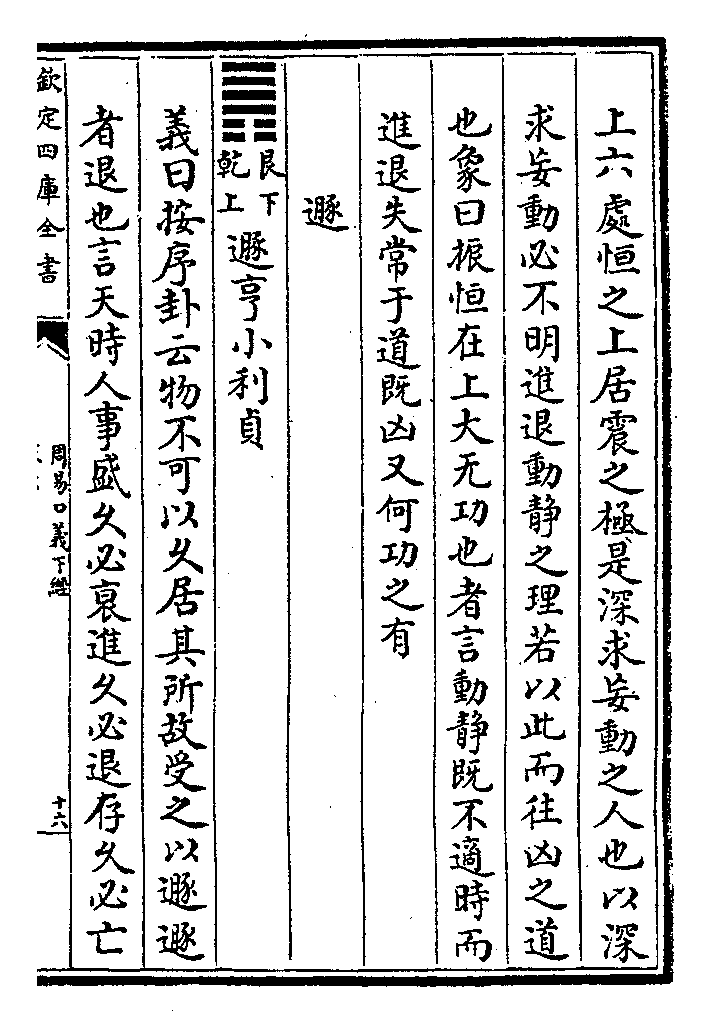 上六處恒之上居震之極是深求妄動之人也以深
求妄動必不明進退動靜之理若以此而往凶之道
也象曰振恒在上大无功也者言動靜既不適時而
進退失常于道既凶又何功之有
遯
艮下
乾上
遯亨小利貞
義曰按序卦云物不可以乆居其所故受之以遯遯
者退也言天時人事盛乆必衰進乆必退存乆必亡
欽定四庫全書
周易口義下經
十六